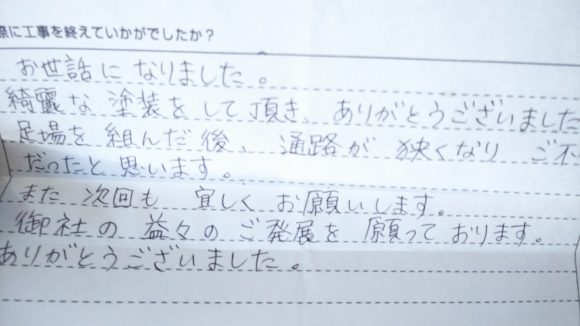 際に工事を終えていかがでしたか?
お世話になりました。
綺麗な塗装をして頂き、ありがとうございました
足場を組んだ後、通路が狭くなりご不
だったと思います。
また次回も宜しくお願いします。
御社の益々のご発展を願っております。
ありがとうございました。